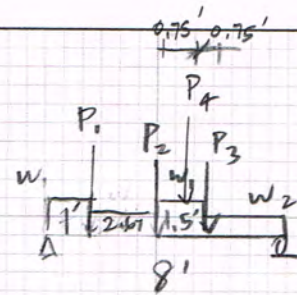 0.75' 0.75'
P4
P1
P2 P3
W1 W2
1' 2.67 1.5'
8'